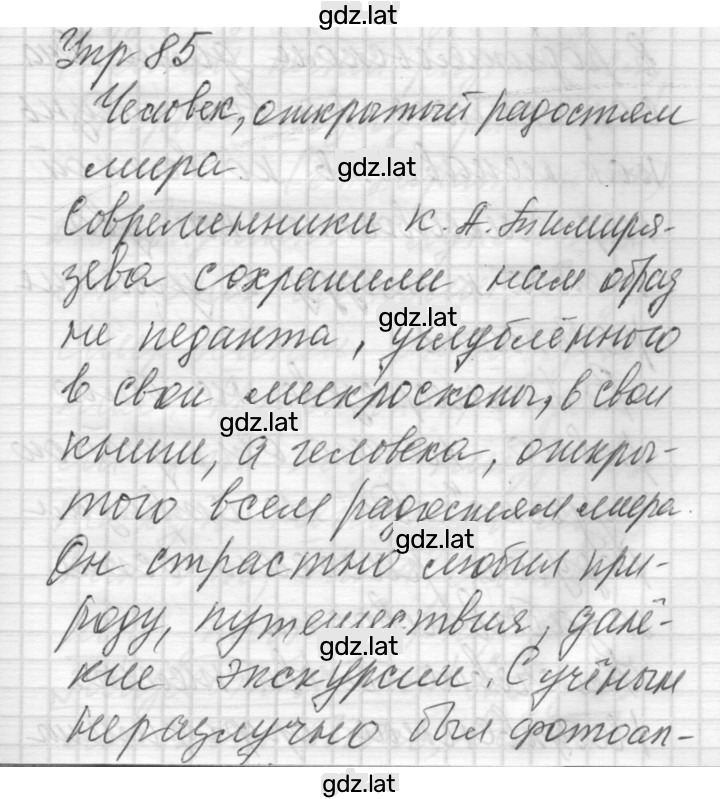 gdz.lat
Упр 85
Человек, открытый радостям
мира.
gdz.lat
Современники К. А. Тимиря-
зева сохранили нам образ
gdz.lat
не педанта, углублённого
в свои микроскопы, в свои
gdz.lat
книги, а человека, откры-
того всем радостям мира.
gdz.lat
Он страстно любил при-
роду, путешествия, далё-
gdz.lat
кие экскурсии. С учёным
неразлучно был фотоап-
gdz.lat